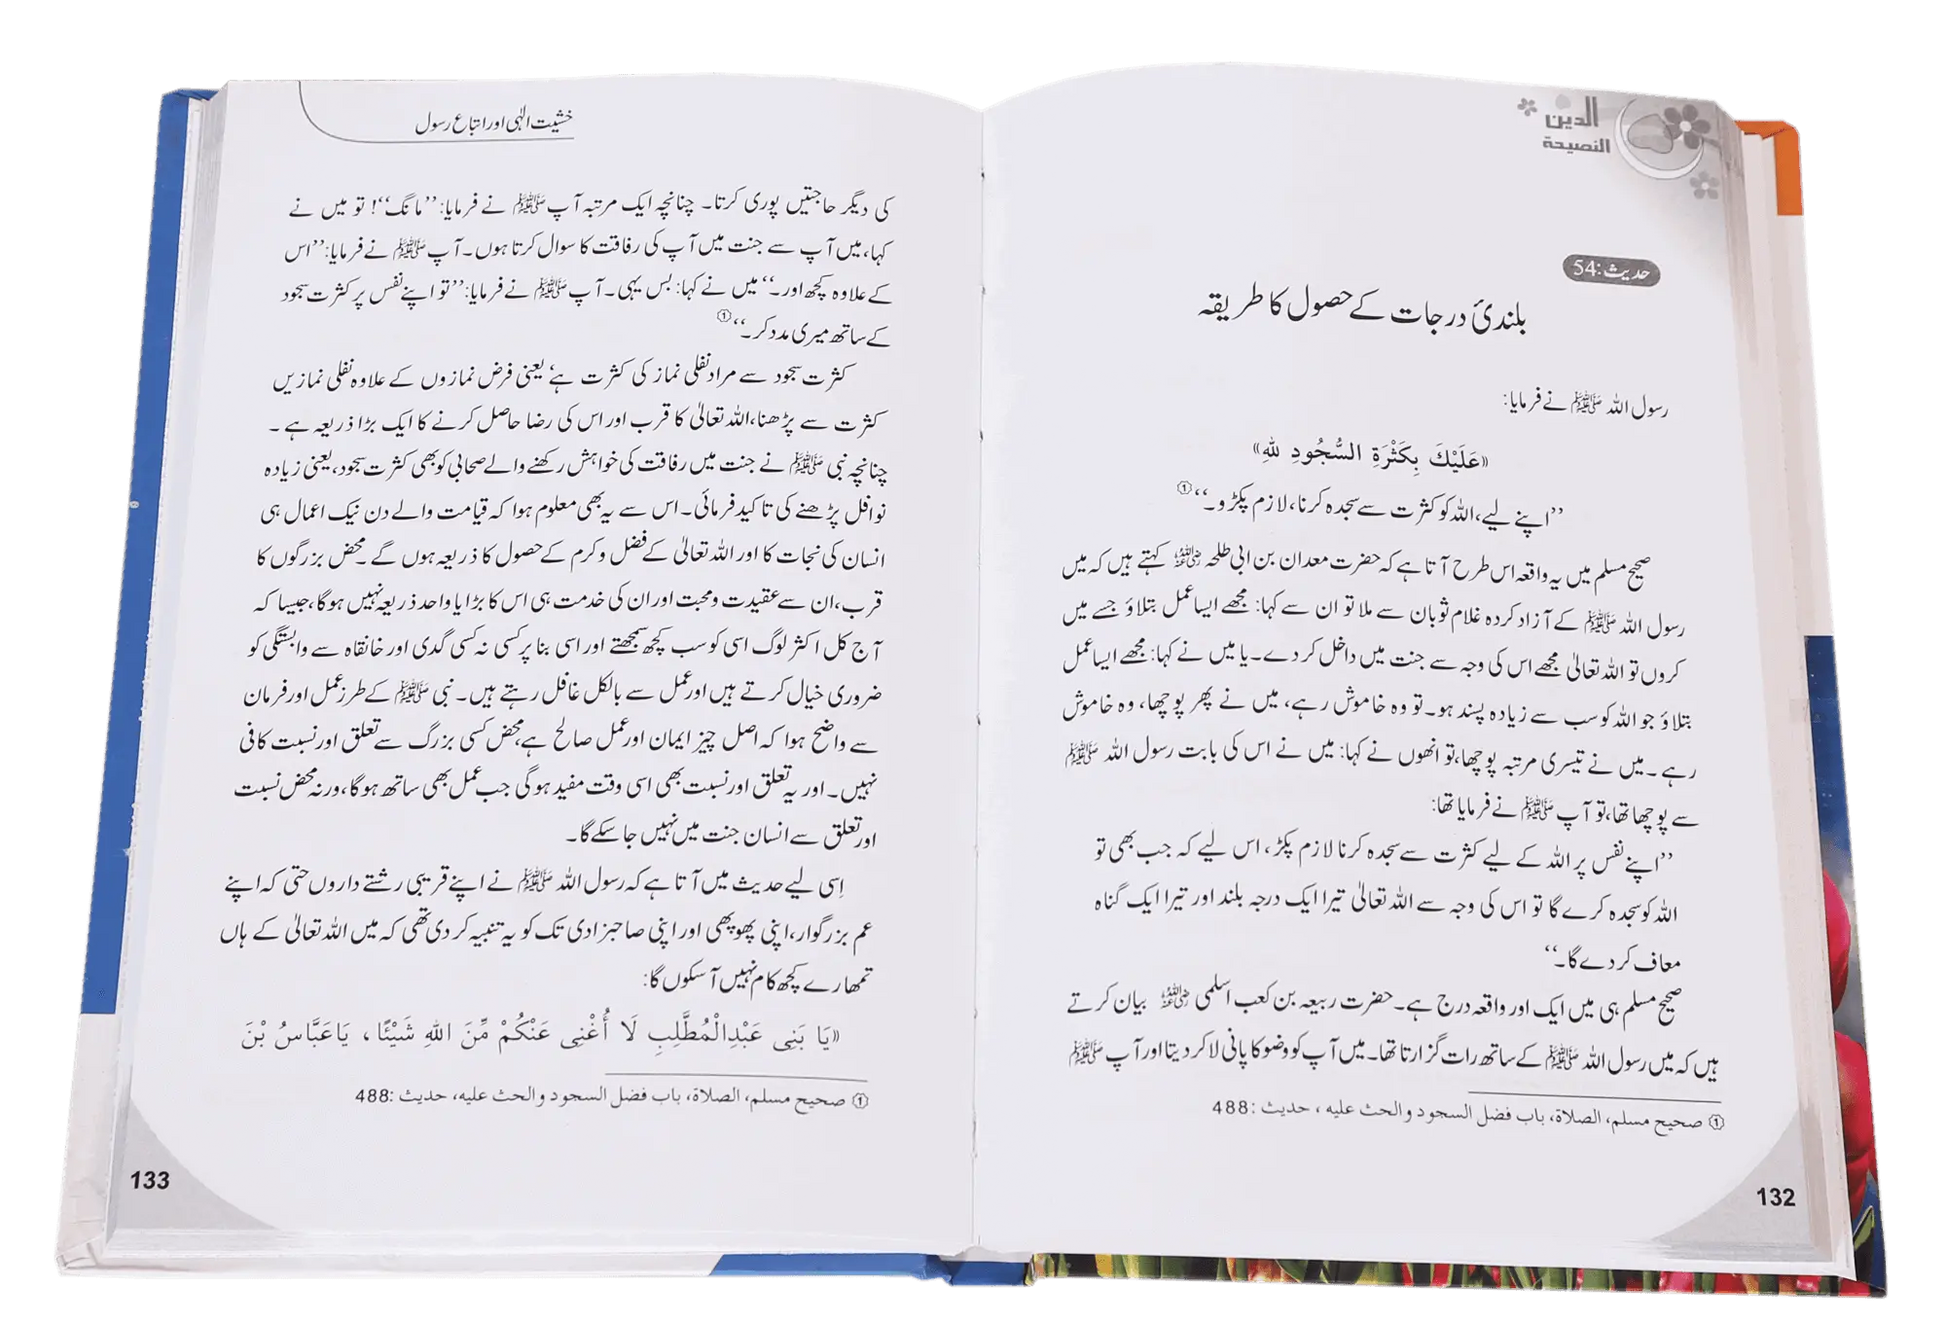 الدين
النصيحة
حدیث:54
بلندیٔ درجات کے حصول کا طریقہ
رسول اللہ ﷺ نے فرمایا:
«عَلَيْكَ بِكَثْرَةِ السُّجُودِ لِلّٰهِ»
’’اپنے لیے، اللہ کو کثرت سے سجدہ کرنا، لازم پکڑو۔‘‘①
صحیح مسلم میں یہ واقعہ اس طرح آتا ہے کہ حضرت معدان بن ابی طلحہ رضی اللہ عنہ کہتے ہیں کہ میں
رسول اللہ ﷺ کے آزاد کردہ غلام ثوبان سے ملا تو ان سے کہا: مجھے ایسا عمل بتلاؤ جسے میں
کروں تو اللہ تعالیٰ مجھے اس کی وجہ سے جنت میں داخل کر دے۔ یا میں نے کہا: مجھے ایسا عمل
بتلاؤ جو اللہ کو سب سے زیادہ پسند ہو۔ تو وہ خاموش رہے، میں نے پھر پوچھا، وہ خاموش
رہے۔ میں نے تیسری مرتبہ پوچھا، تو انھوں نے کہا: میں نے اس کی بابت رسول اللہ ﷺ
سے پوچھا تھا، تو آپ ﷺ نے فرمایا تھا:
’’اپنے نفس پر اللہ کے لیے کثرت سے سجدہ کرنا لازم پکڑ، اس لیے کہ جب بھی تو
اللہ کو سجدہ کرے گا تو اس کی وجہ سے اللہ تعالیٰ تیرا ایک درجہ بلند اور تیرا ایک گناہ
معاف کر دے گا۔‘‘
صحیح مسلم ہی میں ایک اور واقعہ درج ہے۔ حضرت ربیعہ بن کعب اسلمی رضی اللہ عنہ بیان کرتے
ہیں کہ میں رسول اللہ ﷺ کے ساتھ رات گزارتا تھا۔ میں آپ کو وضو کا پانی لا کر دیتا اور آپ ﷺ
① صحيح مسلم، الصلاة، باب فضل السجود والحث عليه، حديث:488
132
خشیت الٰہی اور اتباع رسول
کی دیگر حاجتیں پوری کرتا۔ چنانچہ ایک مرتبہ آپ ﷺ نے فرمایا: ’’مانگ‘‘! تو میں نے
کہا، میں آپ سے جنت میں آپ کی رفاقت کا سوال کرتا ہوں۔ آپ ﷺ نے فرمایا: ’’اس
کے علاوہ کچھ اور۔‘‘ میں نے کہا: بس یہی۔ آپ ﷺ نے فرمایا: ’’تو اپنے نفس پر کثرت سجود
کے ساتھ میری مدد کر۔‘‘①
کثرت سجود سے مراد نفلی نماز کی کثرت ہے، یعنی فرض نمازوں کے علاوہ نفلی نمازیں
کثرت سے پڑھنا، اللہ تعالیٰ کا قرب اور اس کی رضا حاصل کرنے کا ایک بڑا ذریعہ ہے۔
چنانچہ نبی ﷺ نے جنت میں رفاقت کی خواہش رکھنے والے صحابی کو بھی کثرت سجود، یعنی زیادہ
نوافل پڑھنے کی تاکید فرمائی۔ اس سے یہ بھی معلوم ہوا کہ قیامت والے دن نیک اعمال ہی
انسان کی نجات کا اور اللہ تعالیٰ کے فضل و کرم کے حصول کا ذریعہ ہوں گے۔ محض بزرگوں کا
قرب، ان سے عقیدت و محبت اور ان کی خدمت ہی اس کا بڑا یا واحد ذریعہ نہیں ہوگا، جیسا کہ
آج کل اکثر لوگ اسی کو سب کچھ سمجھتے اور اسی بنا پر کسی نہ کسی گدی اور خانقاہ سے وابستگی کو
ضروری خیال کرتے ہیں اور عمل سے بالکل غافل رہتے ہیں۔ نبی ﷺ کے طرز عمل اور فرمان
سے واضح ہوا کہ اصل چیز ایمان اور عمل صالح ہے، محض کسی بزرگ سے تعلق اور نسبت کافی
نہیں۔ اور یہ تعلق اور نسبت بھی اسی وقت مفید ہوگی جب عمل بھی ساتھ ہوگا، ورنہ محض نسبت
اور تعلق سے انسان جنت میں نہیں جا سکے گا۔
اِسی لیے حدیث میں آتا ہے کہ رسول اللہ ﷺ نے اپنے قریبی رشتے داروں حتی کہ اپنے
عم بزرگوار، اپنی پھوپھی اور اپنی صاحبزادی تک کو یہ تنبیہ کر دی تھی کہ میں اللہ تعالیٰ کے ہاں
تمھارے کچھ کام نہیں آ سکوں گا:
«يَا بَنِي عَبْدِالْمُطَّلِبِ لَا أُغْنِي عَنْكُمْ مِّنَ اللهِ شَيْئًا، يَاعَبَّاسُ بْنَ
① صحيح مسلم، الصلاة، باب فضل السجود والحث عليه، حديث:488
133